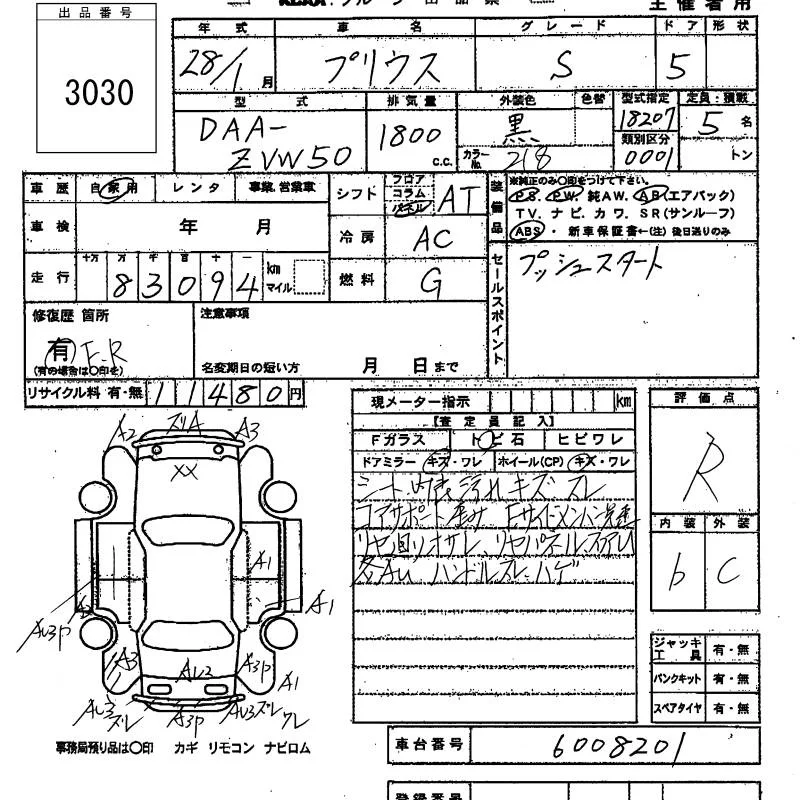 出品番号
3030
主催者用
年式 車名 グレード ドア 形状
28/1月 プリウス S 5
型式 排気量 外装色 色替 型式指定 定員・積載
DAA-ZVW50 1800c.c. 黒 18207 5名
カラーNo. 218 類別区分 0001 トン
車歴 自家用 レンタ 事業、営業車
シフト フロア コラム パネル AT
車検 年 月
冷房 AC
走行 十万 万 千 百 十 一 km マイル
83094
燃料 G
装備品 ※純正のみ○印をつけて下さい。
P.S. P.W. 純AW. AB(エアバック)
TV. ナビ. カワ. SR(サンルーフ)
ABS・新車保証書←(注)後日送りのみ
セールスポイント
プッシュスタート
修復歴 箇所
有 F.R
(有の場合は○印を)
注意事項
名変期日の短い方 月 日まで
リサイクル料 有・無 11480円
現メーター指示 km
【査定員記入】
Fガラス トビ石 ヒビワレ
ドアミラー キズ・ワレ ホイール(CP) キズ・ワレ
シート、内張汚れ キズ スレ
コアサポート歪み Fサイドメンバー
リヤ廻りオサレ、リヤパネル
各AU ハンドルスレ、ハゲ
評価点
R
内装 外装
b C
ジャッキ工具 有・無
パンクキット 有・無
スペアタイヤ 有・無
A2 ズリA A3
XX
A1
A2 A1
AU3P
A3 AU2 A3P A1
AU3ズレ A3P AU3ズレ ワレ
事務局預り品は○印 カギ リモコン ナビロム
車台番号 6008201
登録番号